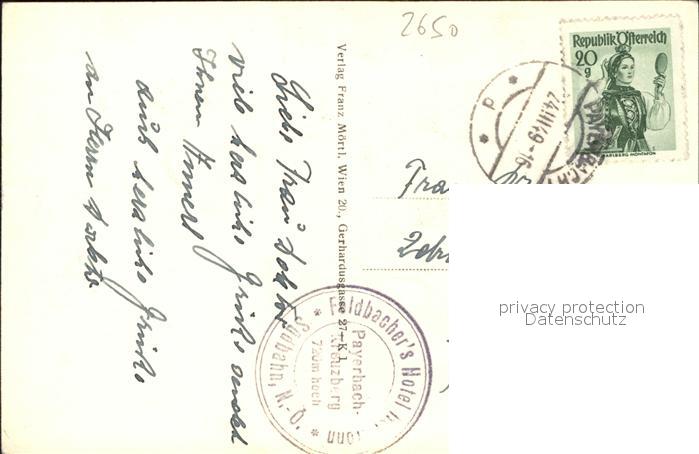 2650
Republik Österreich
20
g
ARLBERG MONTAFON
PAYERBACH
24.III.49-16
Verlag Franz Mörtl, Wien 20., Gerhardusgasse 27-K 1
Liebe Frau Doktor
viele herzliche Grüße sendet
Ihnen
auch herzliche Grüße
an Herrn Doktor
Feldbacher's Hotel
Payerbach-
Kreuzberg
Südbahn, N.-Ö.
privacy protection
Datenschutz